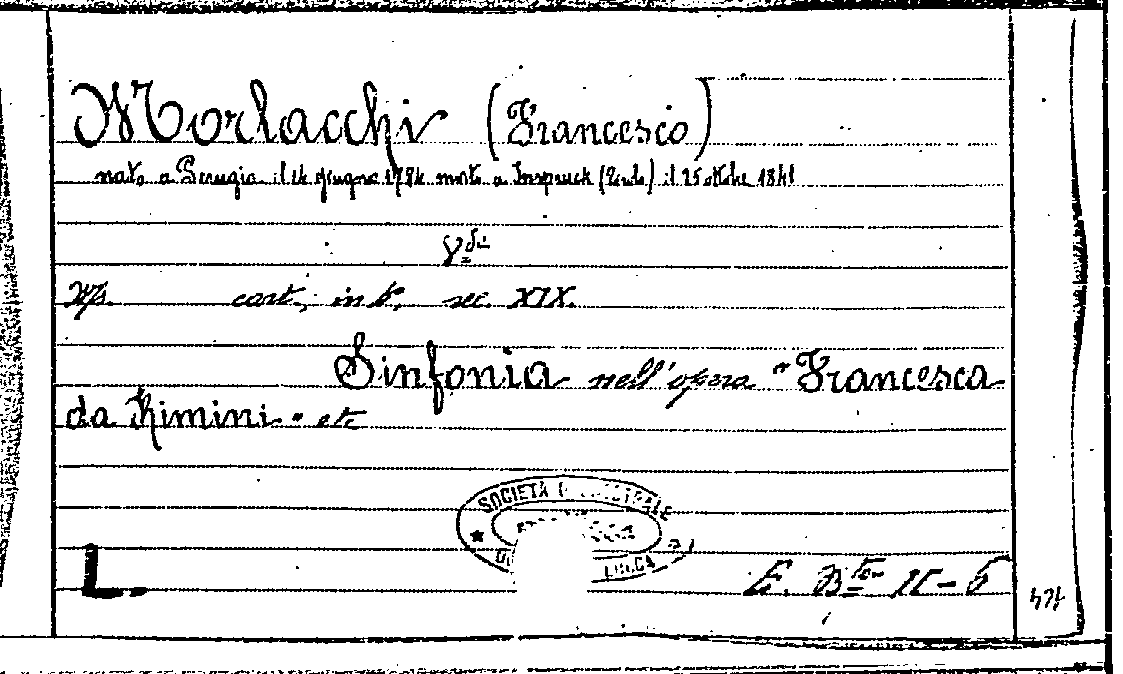 Morlacchi (Francesco)
nato a Perugia il 14 giugno 1784 morto a Inspruck (Tirolo) il 25 ottobre 1841
Vdi
Ms. cart., in f°, sec. XIX.
Sinfonia nell'opera "Francesca
da Rimini" etc
SOCIETÀ
LUCCA
L.
E. B II-5